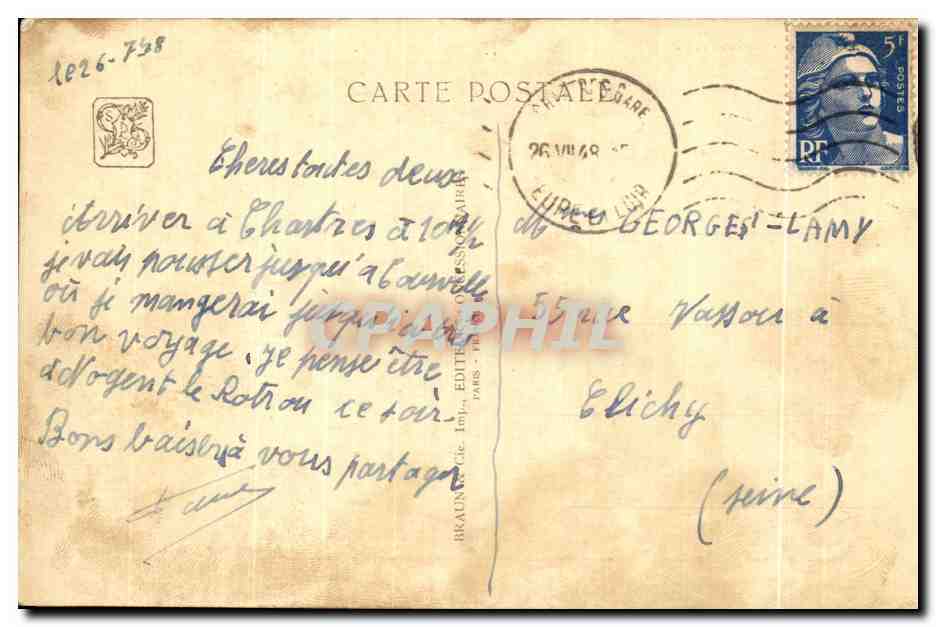 le 26-7-48
CARTE POSTALE
Cheres toutes deux
Arriver à Chartres à 10h½
je vais pousser jusqu'à Courville
où je mangerai jusqu'ici
bon voyage. je pense être
à Nogent le Rotrou ce soir.
Bons baisers à vous partager
BRAUN & Cie. Imp., EDITEUR CONCESSIONNAIRE
PARIS -
CHARTRES GARE
26 VII 48
EURE & LOIR
5F
POSTES
RF
M GEORGES-LAMY
55 rue Vassou à
Clichy
(Seine)
CPAPHIL